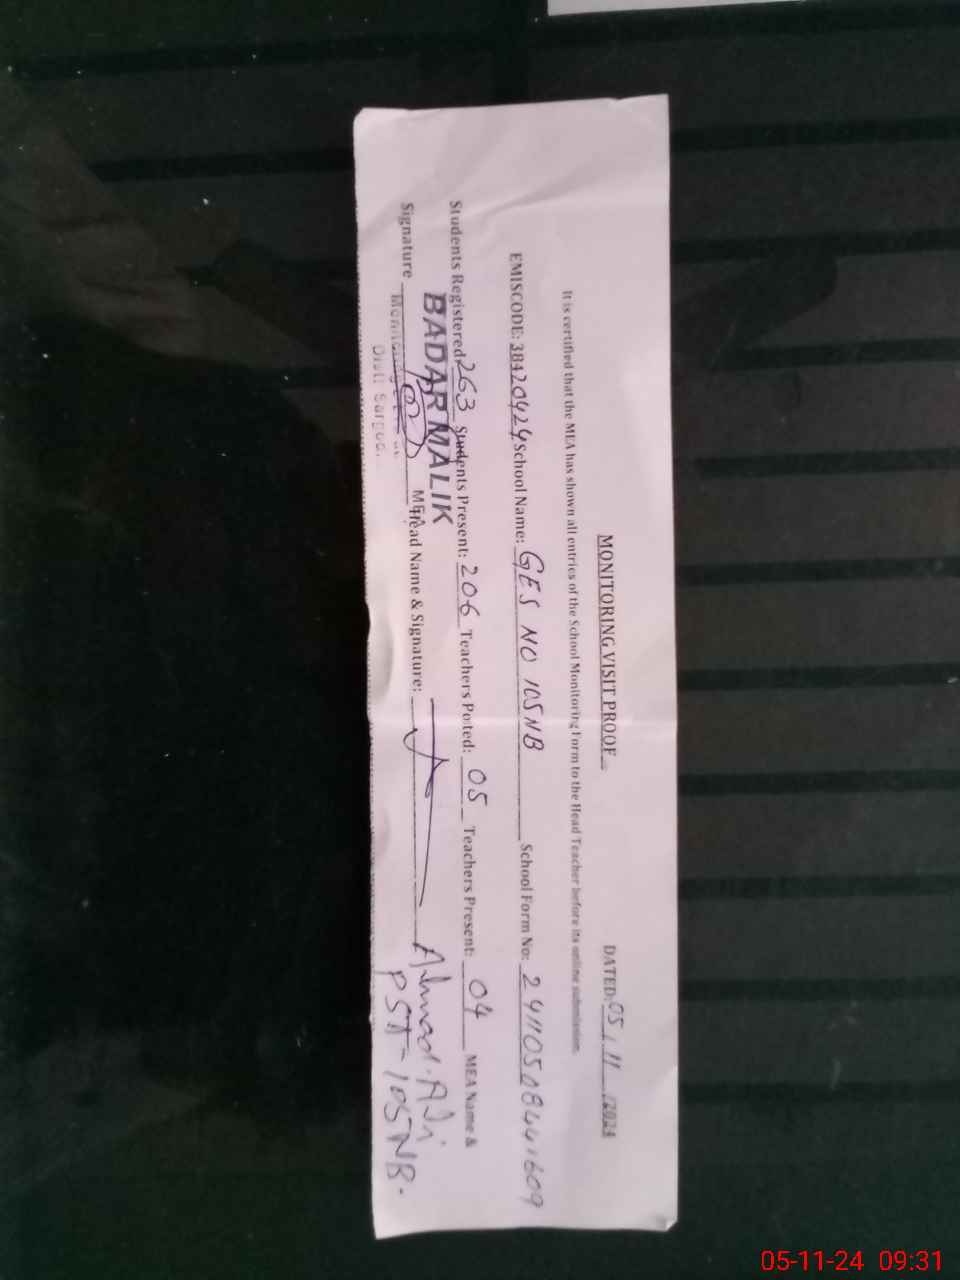 MONITORING VISIT PROOF
DATED: 05 / 11 /2024
It is certified that the MEA has shown all entries of the School Monitoring Form to the Head Teacher before its online submission.
EMISCODE: 38420424 School Name: GES NO 105NB School Form No:
Students Registered 263 Students Present: 206 Teachers Posted: 05 Teachers Present: 04 MEA Name &
BADAR MALIK
Signature MEA Head Name & Signature: Ahmad Ali
PST-105NB.
Distt Sargod
05-11-24 09:31